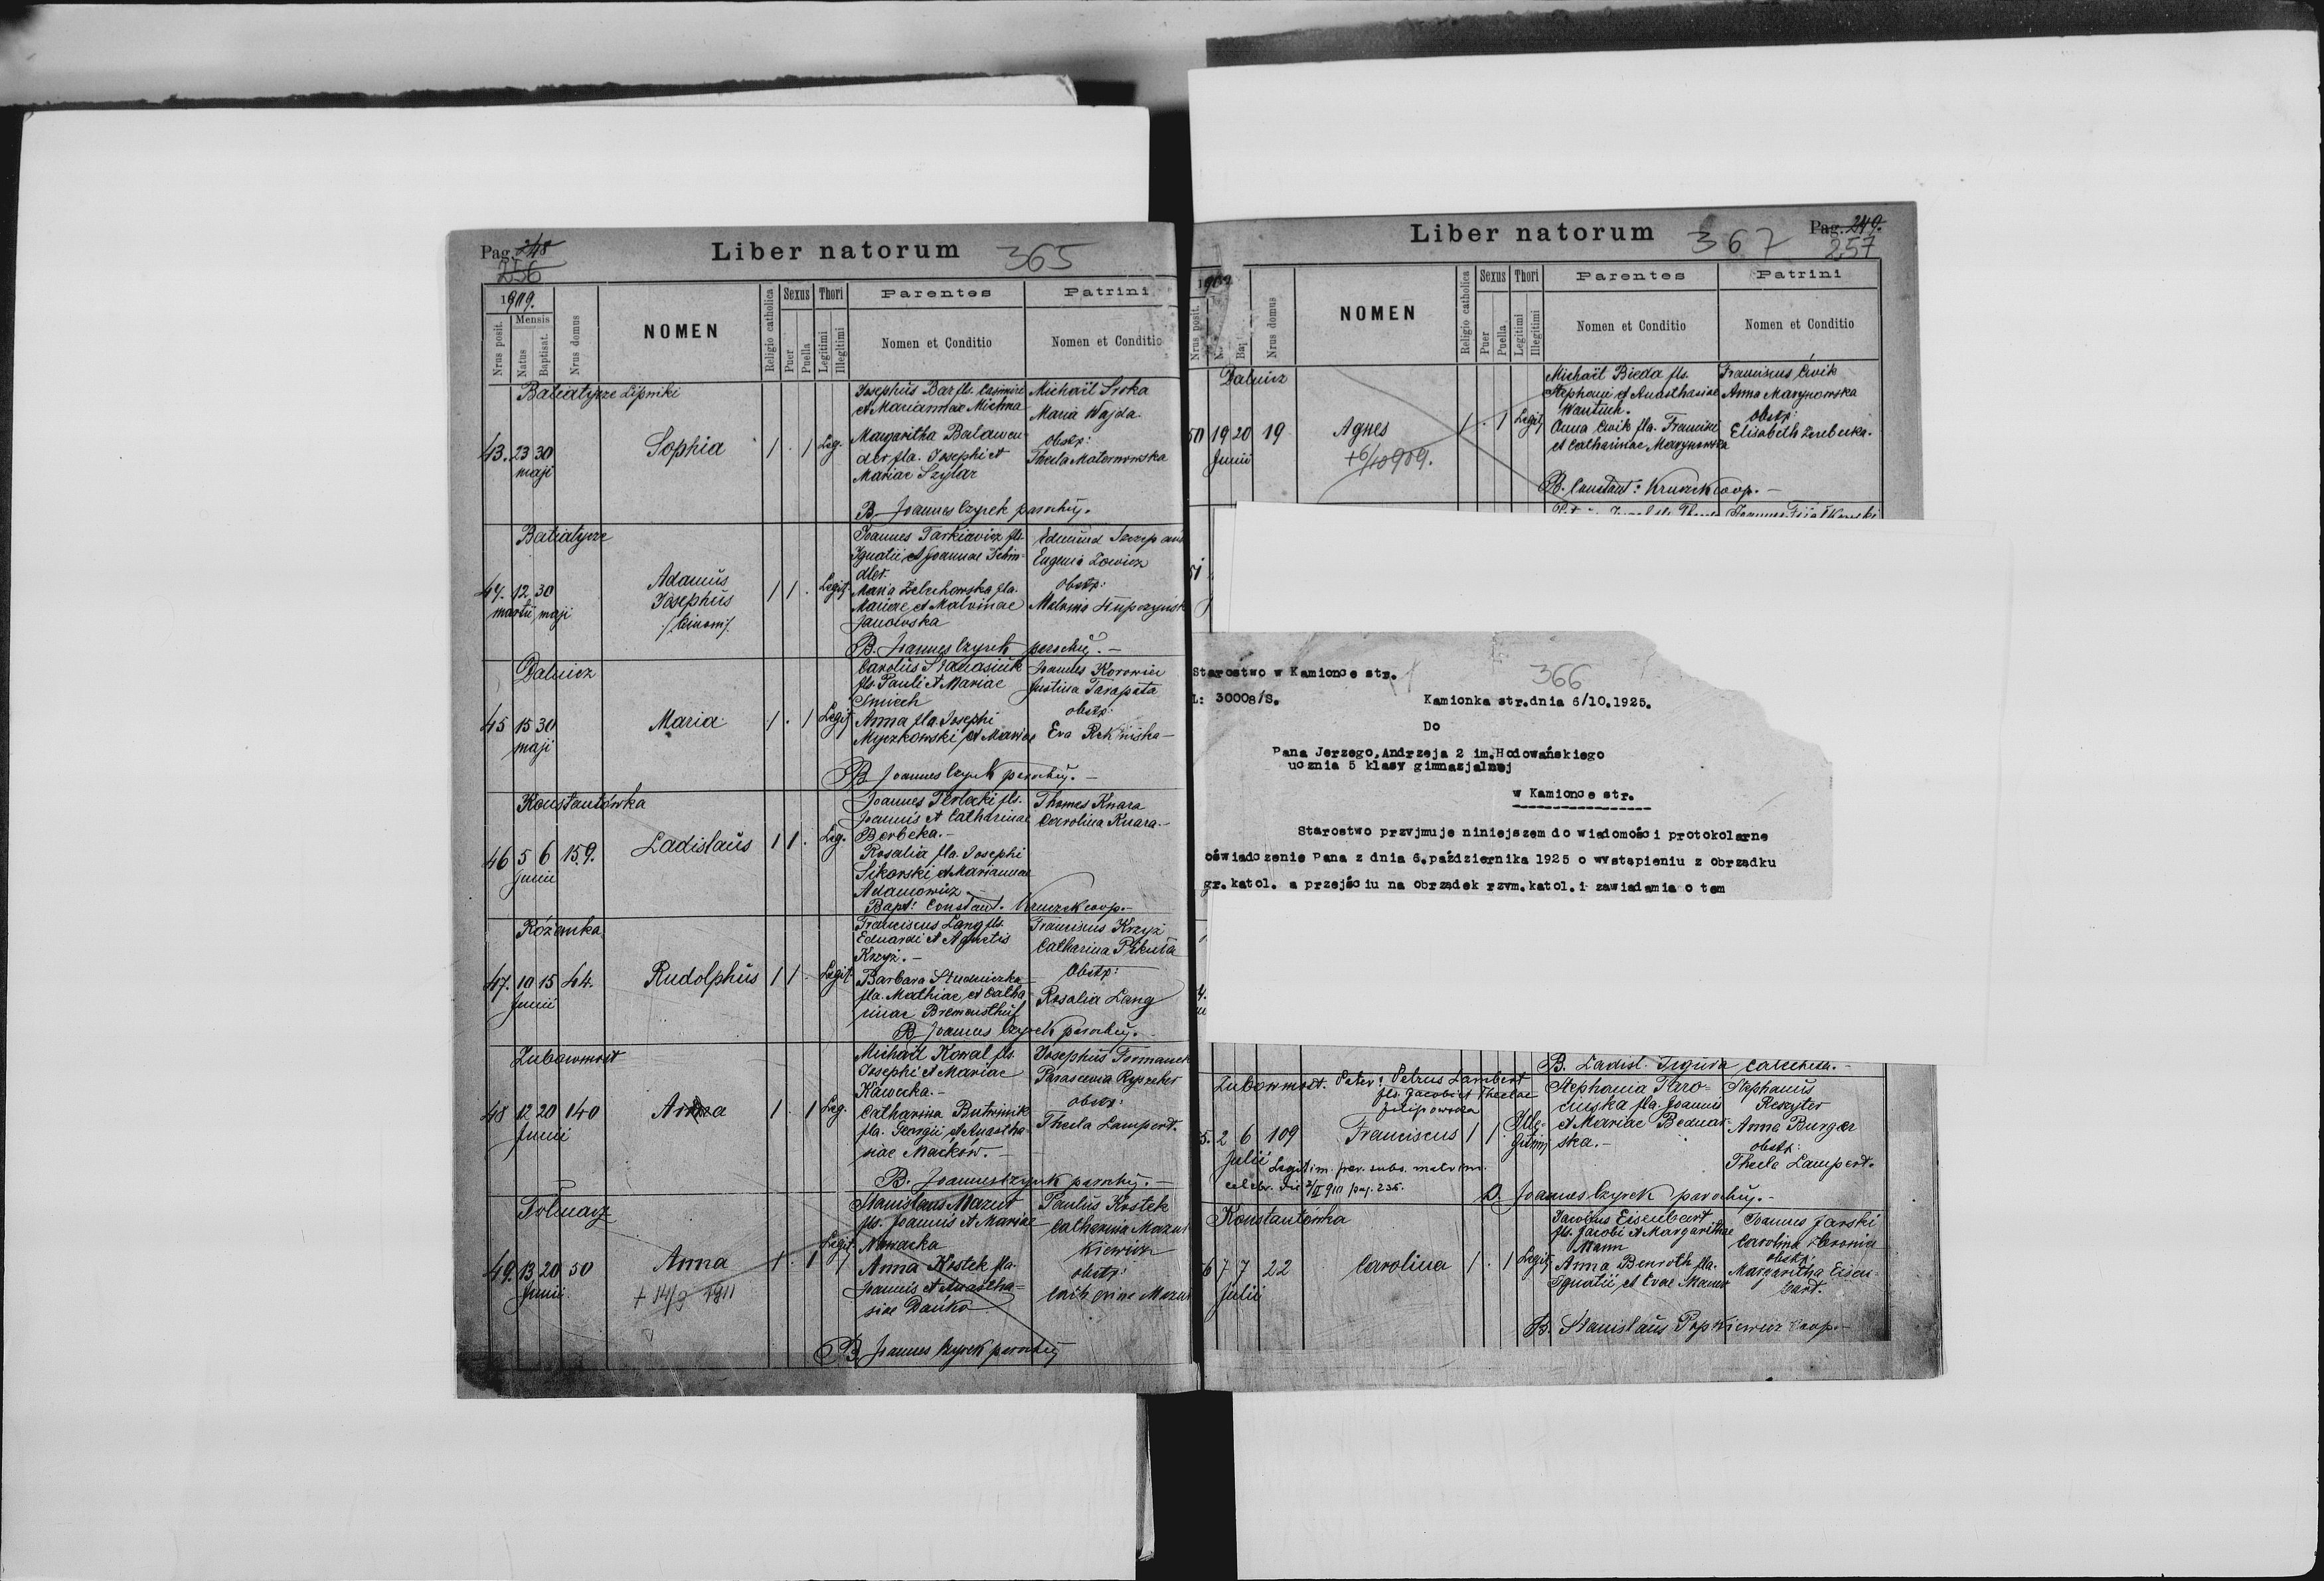 Pag. 248
256
Liber natorum
365
1909.
Nrus posit.
Mensis
Natus
Baptisat.
Nrus domus
NOMEN
Religio catholica
Sexus
Puer
Puella
Thori
Legitimi
Illegitimi
Parentes
Nomen et Conditio
Patrini
Nomen et Conditio
Batiatycze Lipniki
43. 23 30
maji
Sophia
1 . 1 Leg.
Josephus Bar fls. Casimiri
et Mariannae Michna
Margaritha Balawen
der fla. Josephi et
Mariae Szylar
Michaël Sroka
Maria Wajda
obstx:
Thecla Maternowska
B. Joannes Czyrek parochus.
Batiatycze
44. 12. 30
martii maji
Adamus
Josephus
/: binom :/
1 1 . Legit.
Joannes Tarkiewicz fls.
Ignatii et Joannae Schin
dler.
Maria Zelechowska fla.
Mariae et Malvinae
Janowska
Edmund
Eugenia
obstx:
Malvina
B. Joannes Czyrek parochus. —
Dalnicz
45 15 30
maji
Maria
1 . 1 Legit.
Carolus Stanasiuk
fls. Pauli et Mariae
Anna fla. Josephi
Myczkowski et Mariae
Joannes Korowiec
Justina Tarapata
obstx:
Eva
B. Joannes Czyrek parochus. —
Konstantówka
46 5 6 159.
junii
Ladislaus
1 1 . Leg.
Joannes Terlecki fls.
Joannis et Catharinae
Berbeka. —
Rosalia fla. Josephi
Sikorski et Mariannae
Adamowicz —
Thomas Knara
Carolina Knara. —
Bapt: Constant. Kruczek coop. —
Różanka
47. 10 15 44.
junii
Rudolphus
1 1 . Legit.
Franciscus Lang fls.
Eduardi et Agnetis
Krzyż. —
Barbara Studniczka
fla. Mathiae et Catha
rinae
Franciscus Krzyż
Catharina Pikuła
Obstx:
Rosalia Lang
B. Joannes Czyrek parochus. —
Zubowmost
48 12 20 140
junii
Anna
1 . 1 Leg.
Michaël Kowal fls.
Josephi et Mariae
Kawecka. —
Catharina Butrinik
fla. Georgii et Anastha
siae Maćków. —
Josephus Formanek
Parascevia
obstx:
Thecla Lampert.
B. Joannes Czyrek parochus. —
49. 13 20 50
junii
Anna
+ 14/9 1911
1 . 1 Legit.
Stanislaus Mazur
fls. Joannis et Mariae
Nowacka
Anna Kostek fla.
Joannis et Anastha=
siae Dańko
Paulus Kostek
Catharina Mazur
kiewicz
obstx:
Catharina Mazur
B. Joannes Czyrek parochus
Liber natorum
367
Pag. 249.
257
1909
Nrus posit.
Nrus domus
NOMEN
Religio catholica
Sexus
Puer
Puella
Thori
Legitimi
Illegitimi
Parentes
Nomen et Conditio
Patrini
Nomen et Conditio
Dalnicz
50 19 20 19
junii
Agnes
+ 6/10 909.
1 . 1 Legit.
Michaël Bieda fls.
Stephani et Anasthasiae
Wantuch.
Anna Ćwik fla. Francisci
et Catharinae Marynowska
Franciscus Ćwik
Anna Marynowska
obstx:
Elisabeth
B. Constant: Kruczek coop. —
Joannes Fijałkowski
51
366
Starostwo w Kamionce str.
L: 30008/S.
Kamionka str.dnia 6/10.1925.
Do
Pana Jerzego,Andrzeja 2 im.Hodowańskiego
ucznia 5 klasy gimnazjalnej
w Kamionce str.
Starostwo przyjmuje niniejszem do wiadomości protokolarne
oświadczenie Pana z dnia 6.października 1925 o wystąpieniu z obrządku
gr.katol. a przejściu na obrządek rzym.katol.i zawiadamia o tem
B. Ladisl. Figura catecheta. —
Zubowmost. Pater: Petrus Lambert
fls. Jacobi et Theclae
Filipowska
5. 2 6 109
julii
Franciscus
1 1 . Ille-
gitimi
Legitim. per. subs. matrim.
celebr. die 2/II 910 pag. 235.
Stephania Taro=
cinska fla. Joannis
et Mariae Bednar
ska. —
Stephanus
Reszyter
Anna Burger
obstx:
Thecla Lampert.
B. Joannes Czyrek parochus. —
Konstantówka
6 7 7 22
julii
Carolina
1 . 1 Legit.
Jacobus Eisenbart
fls. Jacobi et Margarithae
Mann
Anna Benroth fla.
Ignatii et Evae Mauer
Joannes Jarski
Carolina
obstx:
Margaritha Eisen-
bart.
B. Stanislaus Popkiewicz coop. —